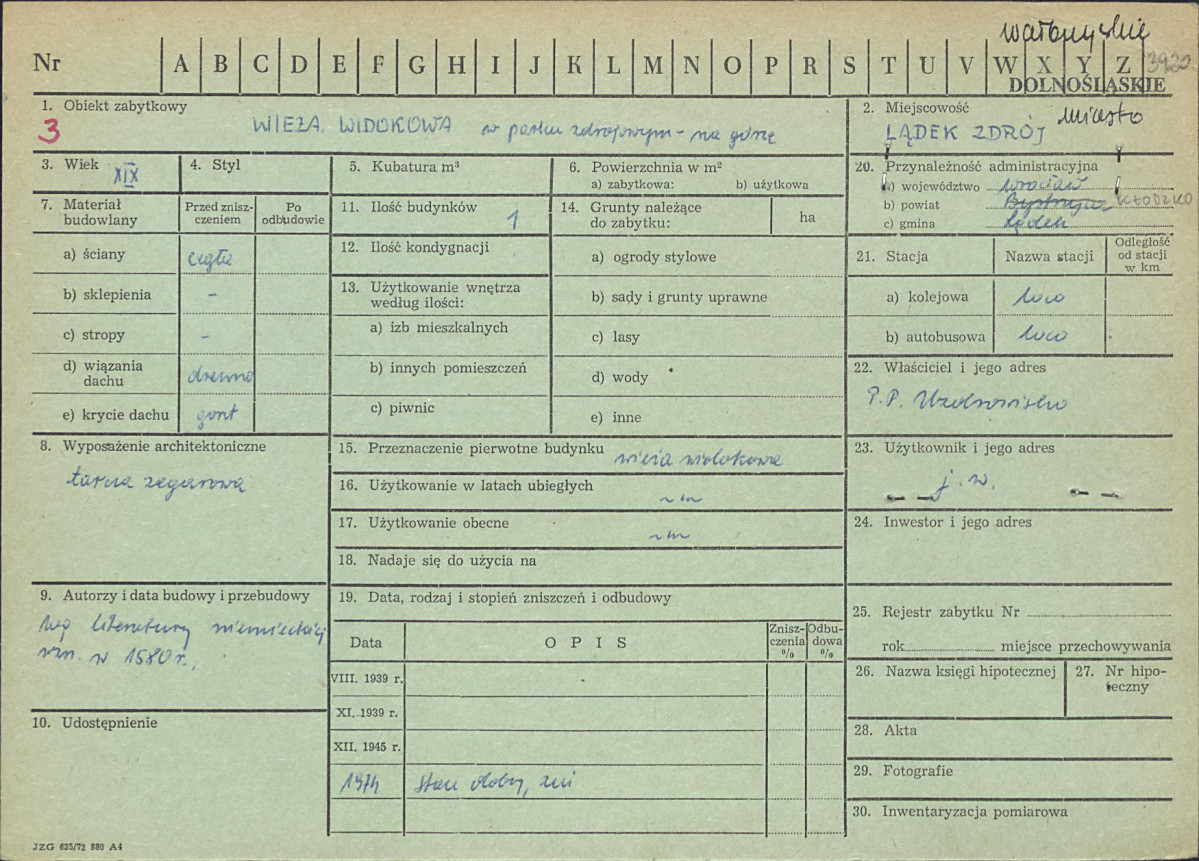 wałbrzyskie
Nr A B C D E F G H I J K L M N O P R S T U V W X Y Z 3920
DOLNOŚLĄSKIE
1. Obiekt zabytkowy
3
WIEŻA WIDOKOWA w parku zdrojowym - na górze
2. Miejscowość
miasto
LĄDEK ZDRÓJ
3. Wiek XIX
4. Styl
5. Kubatura m³
6. Powierzchnia w m²
a) zabytkowa: b) użytkowa
20. Przynależność administracyjna
a) województwo Wrocław
b) powiat Bystrzyca KŁODZKO
c) gmina Lądek
7. Materiał budowlany
Przed zniszczeniem
Po odbudowie
a) ściany cegła
b) sklepienia -
c) stropy -
d) wiązania dachu drewno
e) krycie dachu gont
11. Ilość budynków 1
12. Ilość kondygnacji
13. Użytkowanie wnętrza
według ilości:
a) izb mieszkalnych
b) innych pomieszczeń
c) piwnic
14. Grunty należące
do zabytku:
ha
a) ogrody stylowe
b) sady i grunty uprawne
c) lasy
d) wody
e) inne
21. Stacja
Nazwa stacji
Odległość
od stacji
w km
a) kolejowa loco
b) autobusowa loco
22. Właściciel i jego adres
P.P. Uzdrowisko
8. Wyposażenie architektoniczne
tarcza zegarowa
15. Przeznaczenie pierwotne budynku wieża widokowa
16. Użytkowanie w latach ubiegłych
17. Użytkowanie obecne
18. Nadaje się do użycia na
23. Użytkownik i jego adres
j.w.
24. Inwestor i jego adres
9. Autorzy i data budowy i przebudowy
wg literatury niemieckiej
wzn. w 1580 r.
10. Udostępnienie
19. Data, rodzaj i stopień zniszczeń i odbudowy
Data
O P I S
Zniszczenia %
Odbudowa %
VIII. 1939 r.
XI. 1939 r.
XII. 1945 r.
1974 stan dobry,
25. Rejestr zabytku Nr
rok miejsce przechowywania
26. Nazwa księgi hipotecznej
27. Nr hipoteczny
28. Akta
29. Fotografie
30. Inwentaryzacja pomiarowa
JZG 635/72 880 A4